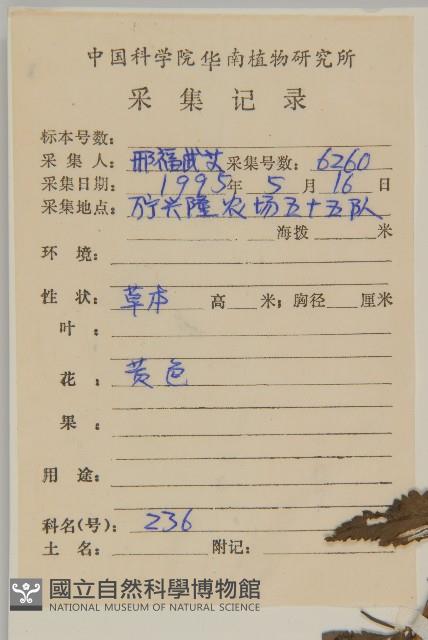 中国科学院华南植物研究所
采集记录
标本号数：
采集人：邢福武 采集号数：6260
采集日期：1995年5月16日
采集地点：万宁兴隆农场五十五队
海拨 米
环境：
性状：草本 高 米；胸径 厘米
叶：
花：黄色
果：
用途：
科名(号)：236
土名： 附记：
國立自然科學博物館
NATIONAL MUSEUM OF NATURAL SCIENCE